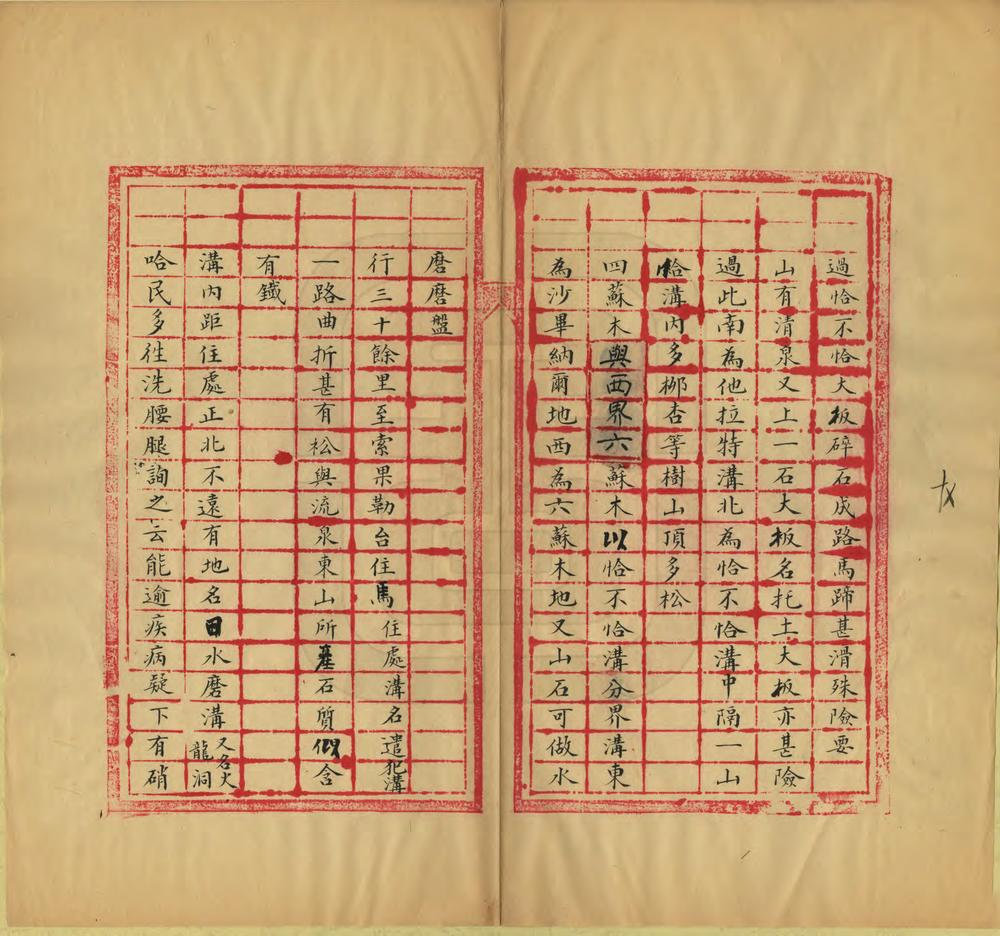 過恰不恰大板碎石成路馬蹄甚滑殊險要
山有清泉又上一石大板名托土大板亦甚險
過此南為他拉特溝北為恰不恰溝中隔一山
恰溝內多柳杏等樹山頂多松
四蘇木與西界六蘇木以恰不恰溝分界溝東
為沙畢納爾地西為六蘇木地又山石可做水
磨磨盤
行三十餘里至索果勒台住馬住處溝名遣犯溝
一路曲折甚有松與流泉東山所產石質似含
有鐵
溝內距住處正北不遠有地名曰水磨溝又名火龍洞
哈民多往洗腰腿詢之云能逾疾病疑下有硝